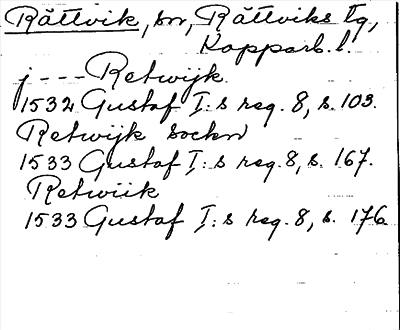 Rättvik, sn, Rättviks tg,
Kopparb. l.
j --- Retwijk
1532 Gustaf I:s reg. 8, s. 103.
Retwijk sockn
1533 Gustaf I:s reg. 8, s. 167.
Retwiik
1533 Gustaf I:s reg. 8, s. 176